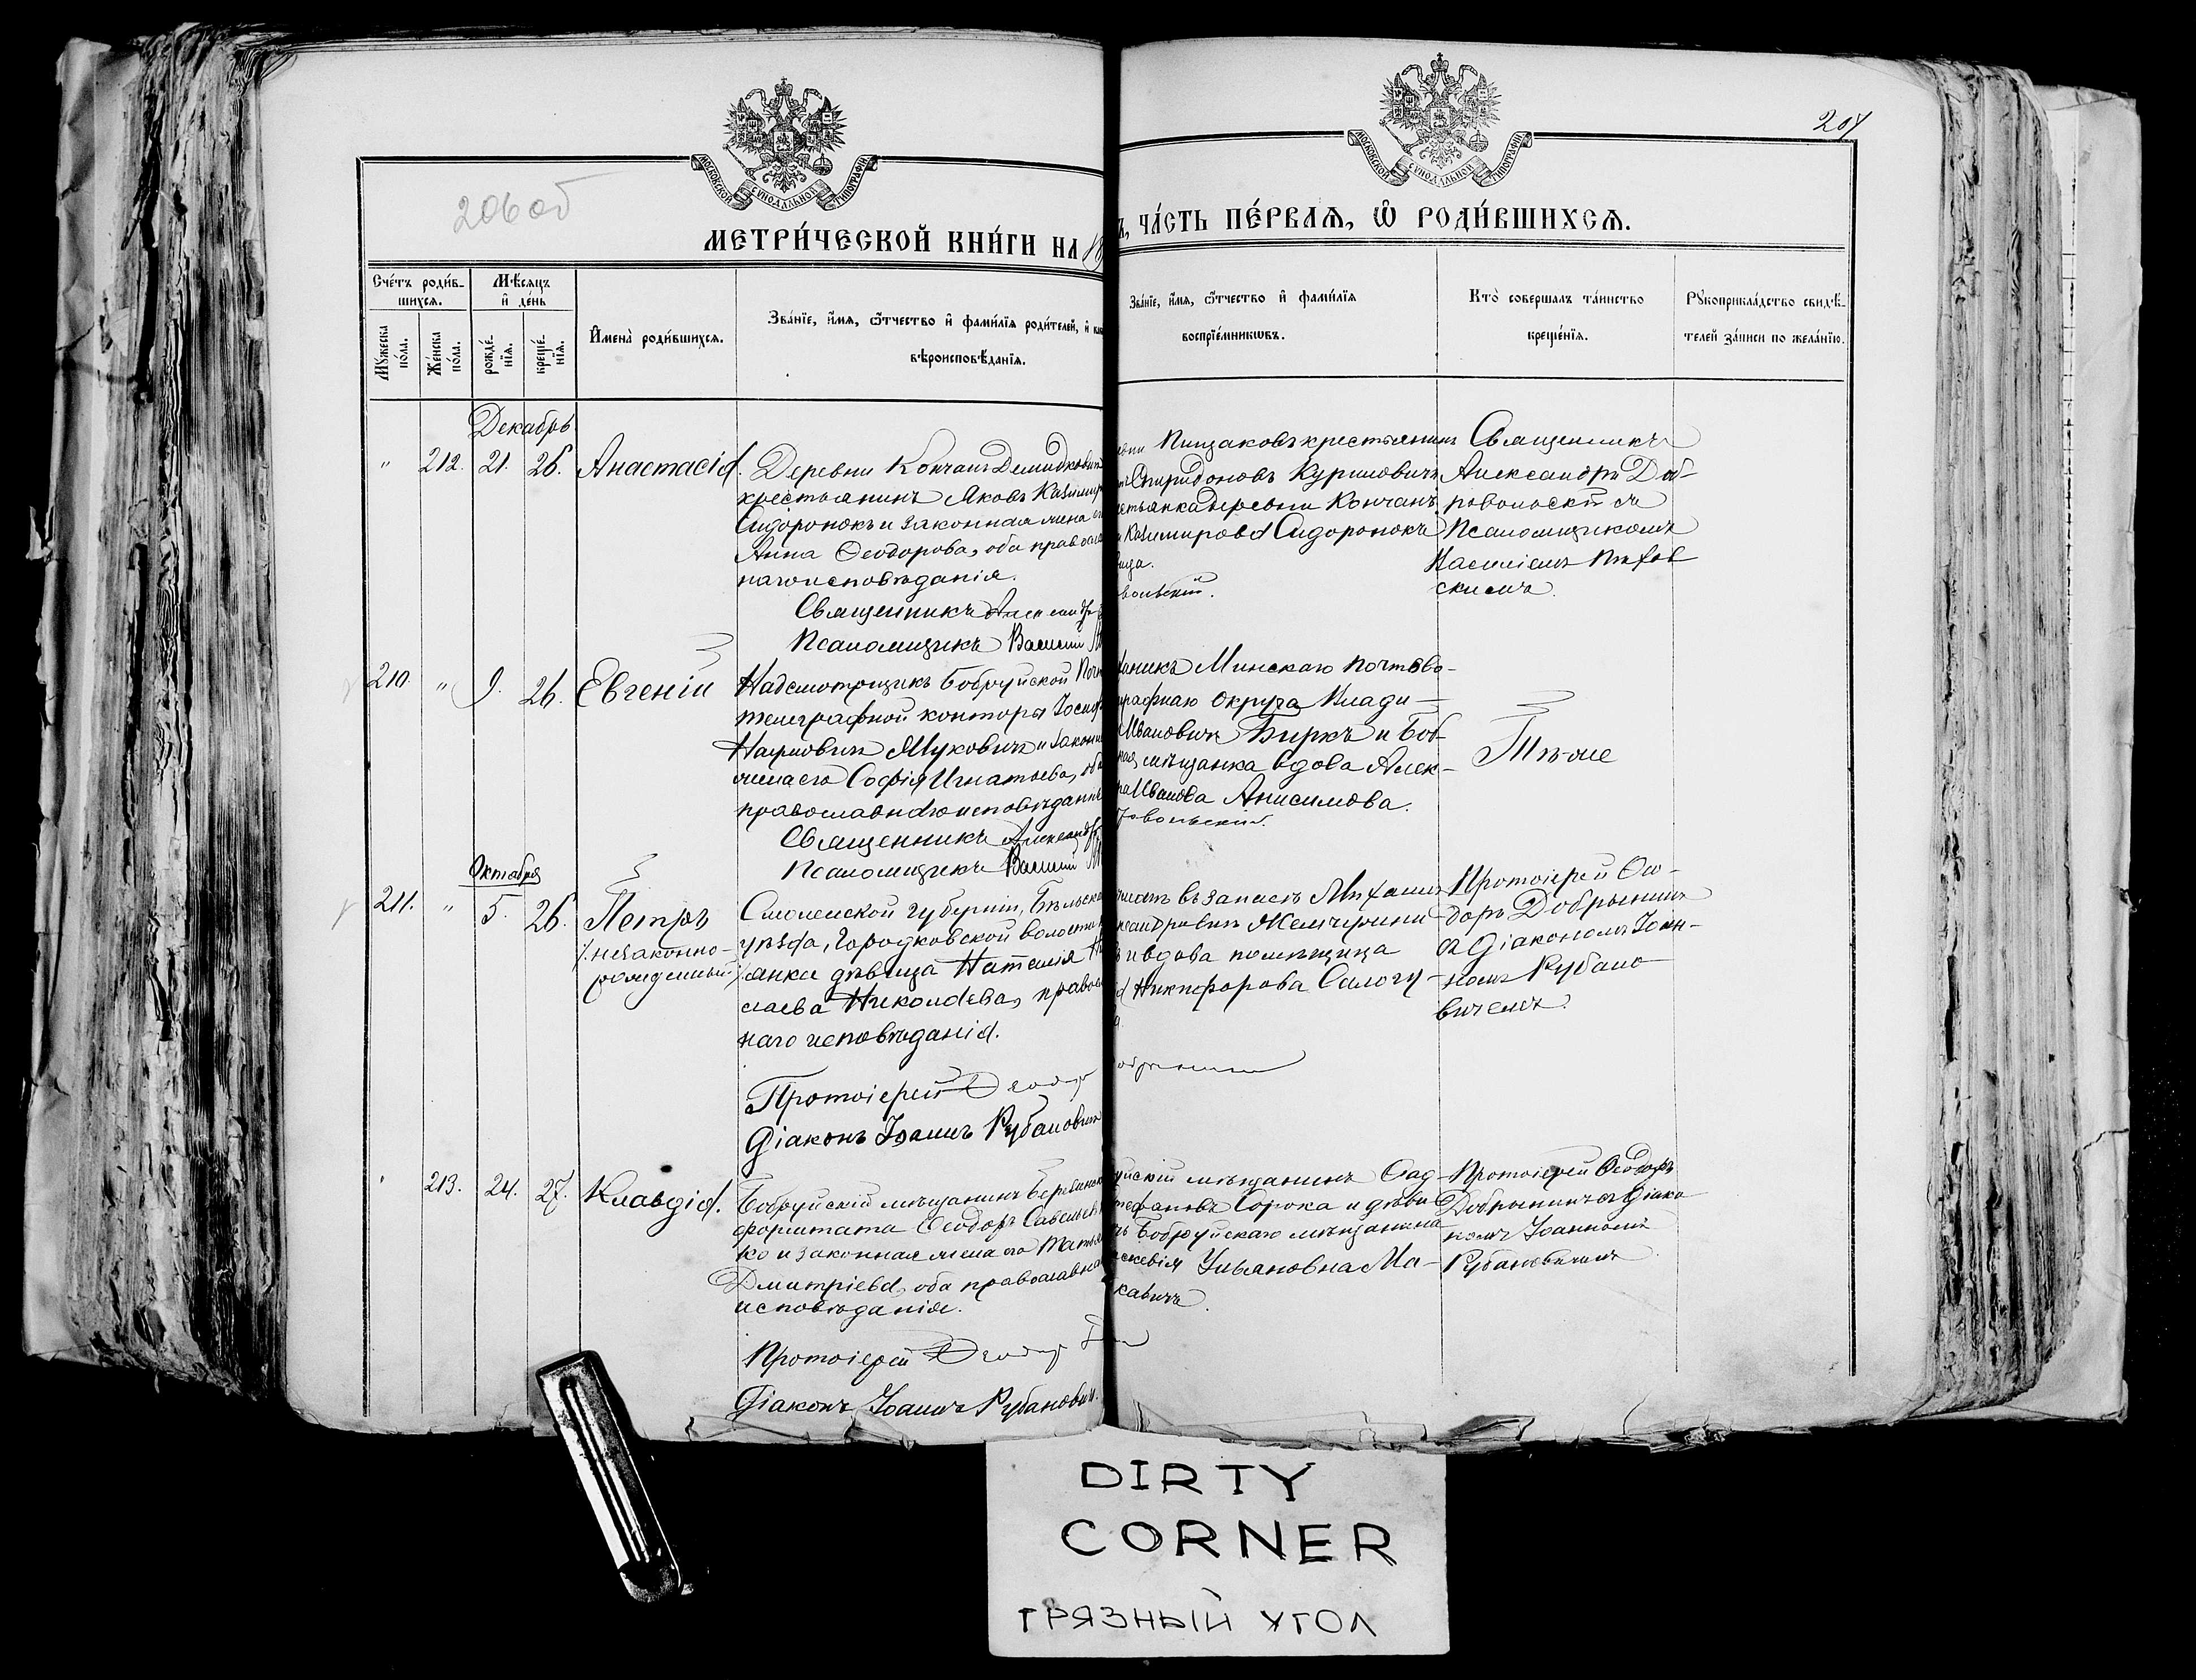 206 об
207
МОСКОВСКОЙ СѴНОДАЛЬНОЙ ТИПОГРАФІИ
МОСКОВСКОЙ СѴНОДАЛЬНОЙ ТИПОГРАФІИ
МЕТРИ́ЧЕСКОЙ КНИ́ГИ НА 18
ЧА́СТЬ ПЕ́РВАЯ, Ѿ РОДИ́ВШИХСЯ.
Сче́тъ роди́в-
шихся.
Мѣ́сяцъ
и҆ де́нь
Мꙋ́жеска
по́ла.
Же́нска
по́ла.
рожде́-
нїя.
креще́-
нїя.
И҆мена̀ роди́вшихся.
Зва́нїе, и҆́мя, ѻ҆́тчество и҆ фами́лїя роди́телей, и҆
вѣроисповѣ́данїя.
Зва́нїе, и҆́мя, ѻ҆́тчество и҆ фами́лїя
воспрїе́мникωвъ.
Кто̀ соверша́лъ та́инство
креще́нїя.
Рꙋкоприкла́дство свидѣ́-
телей за́писи по жела́нїю.
Декабрь
" 212. 21. 26. Анастасія.
Деревни Кончанъ Демидков
крестьянинъ Яковъ Казимир
Сидоронокъ и законная жена е
Анна Ѳеодорова, оба правосла
наго исповѣданія.
Священникъ Александръ
Псаломщикъ Василій
вни Пищаковъ крестьянинъ
Спиридоновъ Куриловичъ
стьянка деревни Кончанъ
Казимирова Сидоронокъ
вица.
вольскій.
Священникъ
Александръ Доб-
ровольскій съ
Псаломщикомъ
Василіемъ
скимъ.
210. " 9. 26. Евгеній
Надсмотрщикъ Бобруйской Почт
телеграфной конторы Іосиф
Наумовичъ Муковичъ и закон
жена его Софія Игнатьева, оба
православнаго исповѣданія
Священникъ Александръ
Псаломщикъ Василій
аникъ Минскаго почтово-
графнаго округа Влади-
Ивановичъ Биркъ и Боб-
ская мѣщанка вдова Алек-
ра Иванова Анисимова.
ровольскій.
Тѣ-же
Октября
211. " 5. 26. Петръ
(незаконно-
рожденный)
Смоленской губерніи, Бѣльска
уѣзда, Городковской волости
янка дѣвица Наталія
слаева Николаева, правос
наго исповѣданія.
Протоіерей Ѳеодор
Діаконъ Іоаннъ Рубанович
въ запасъ Михаилъ
ксандровичъ Жемчужни
и вдова помѣщица
Никифорова Салогу-
Протоіерей Ѳео-
доръ Добрынинъ
съ Діакономъ Іоан-
номъ Рубано-
вичемъ.
213. 24. 27. Клавдія.
Бобруйскій мѣщанинъ Березинск
форштата Ѳеодоръ Савельев
ко и законная жена его Татья
Дмитріева, оба православна
исповѣданія.
Протоіерей Ѳеодор
Діаконъ Іоаннъ Рубанович.
уйскій мѣщанинъ Ѳад-
тефановъ Сорока и дѣви
чь Бобруйскаго мѣщанина
аскевія Ульяновна Ма-
кавичъ.
Протоіерей Ѳеодоръ
Добрынинъ съ Діако
номъ Іоанномъ
Рубановичемъ.
DIRTY
CORNER
ГРЯЗНЫЙ УГОЛ